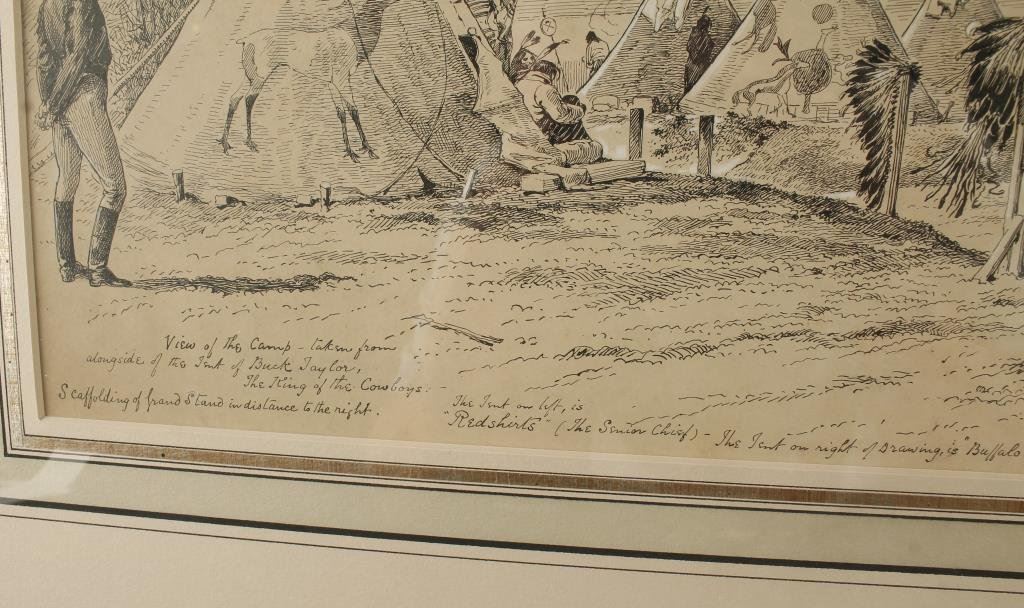 View of the Camp - taken from
alongside of the Tent of Buck Taylor,
The King of the Cowboys.
Scaffolding of Grand Stand in distance to the right.
The Tent on left, is
"Redshirts" (The Senior Chief) - The Tent on right of Drawing, is "Buffalo